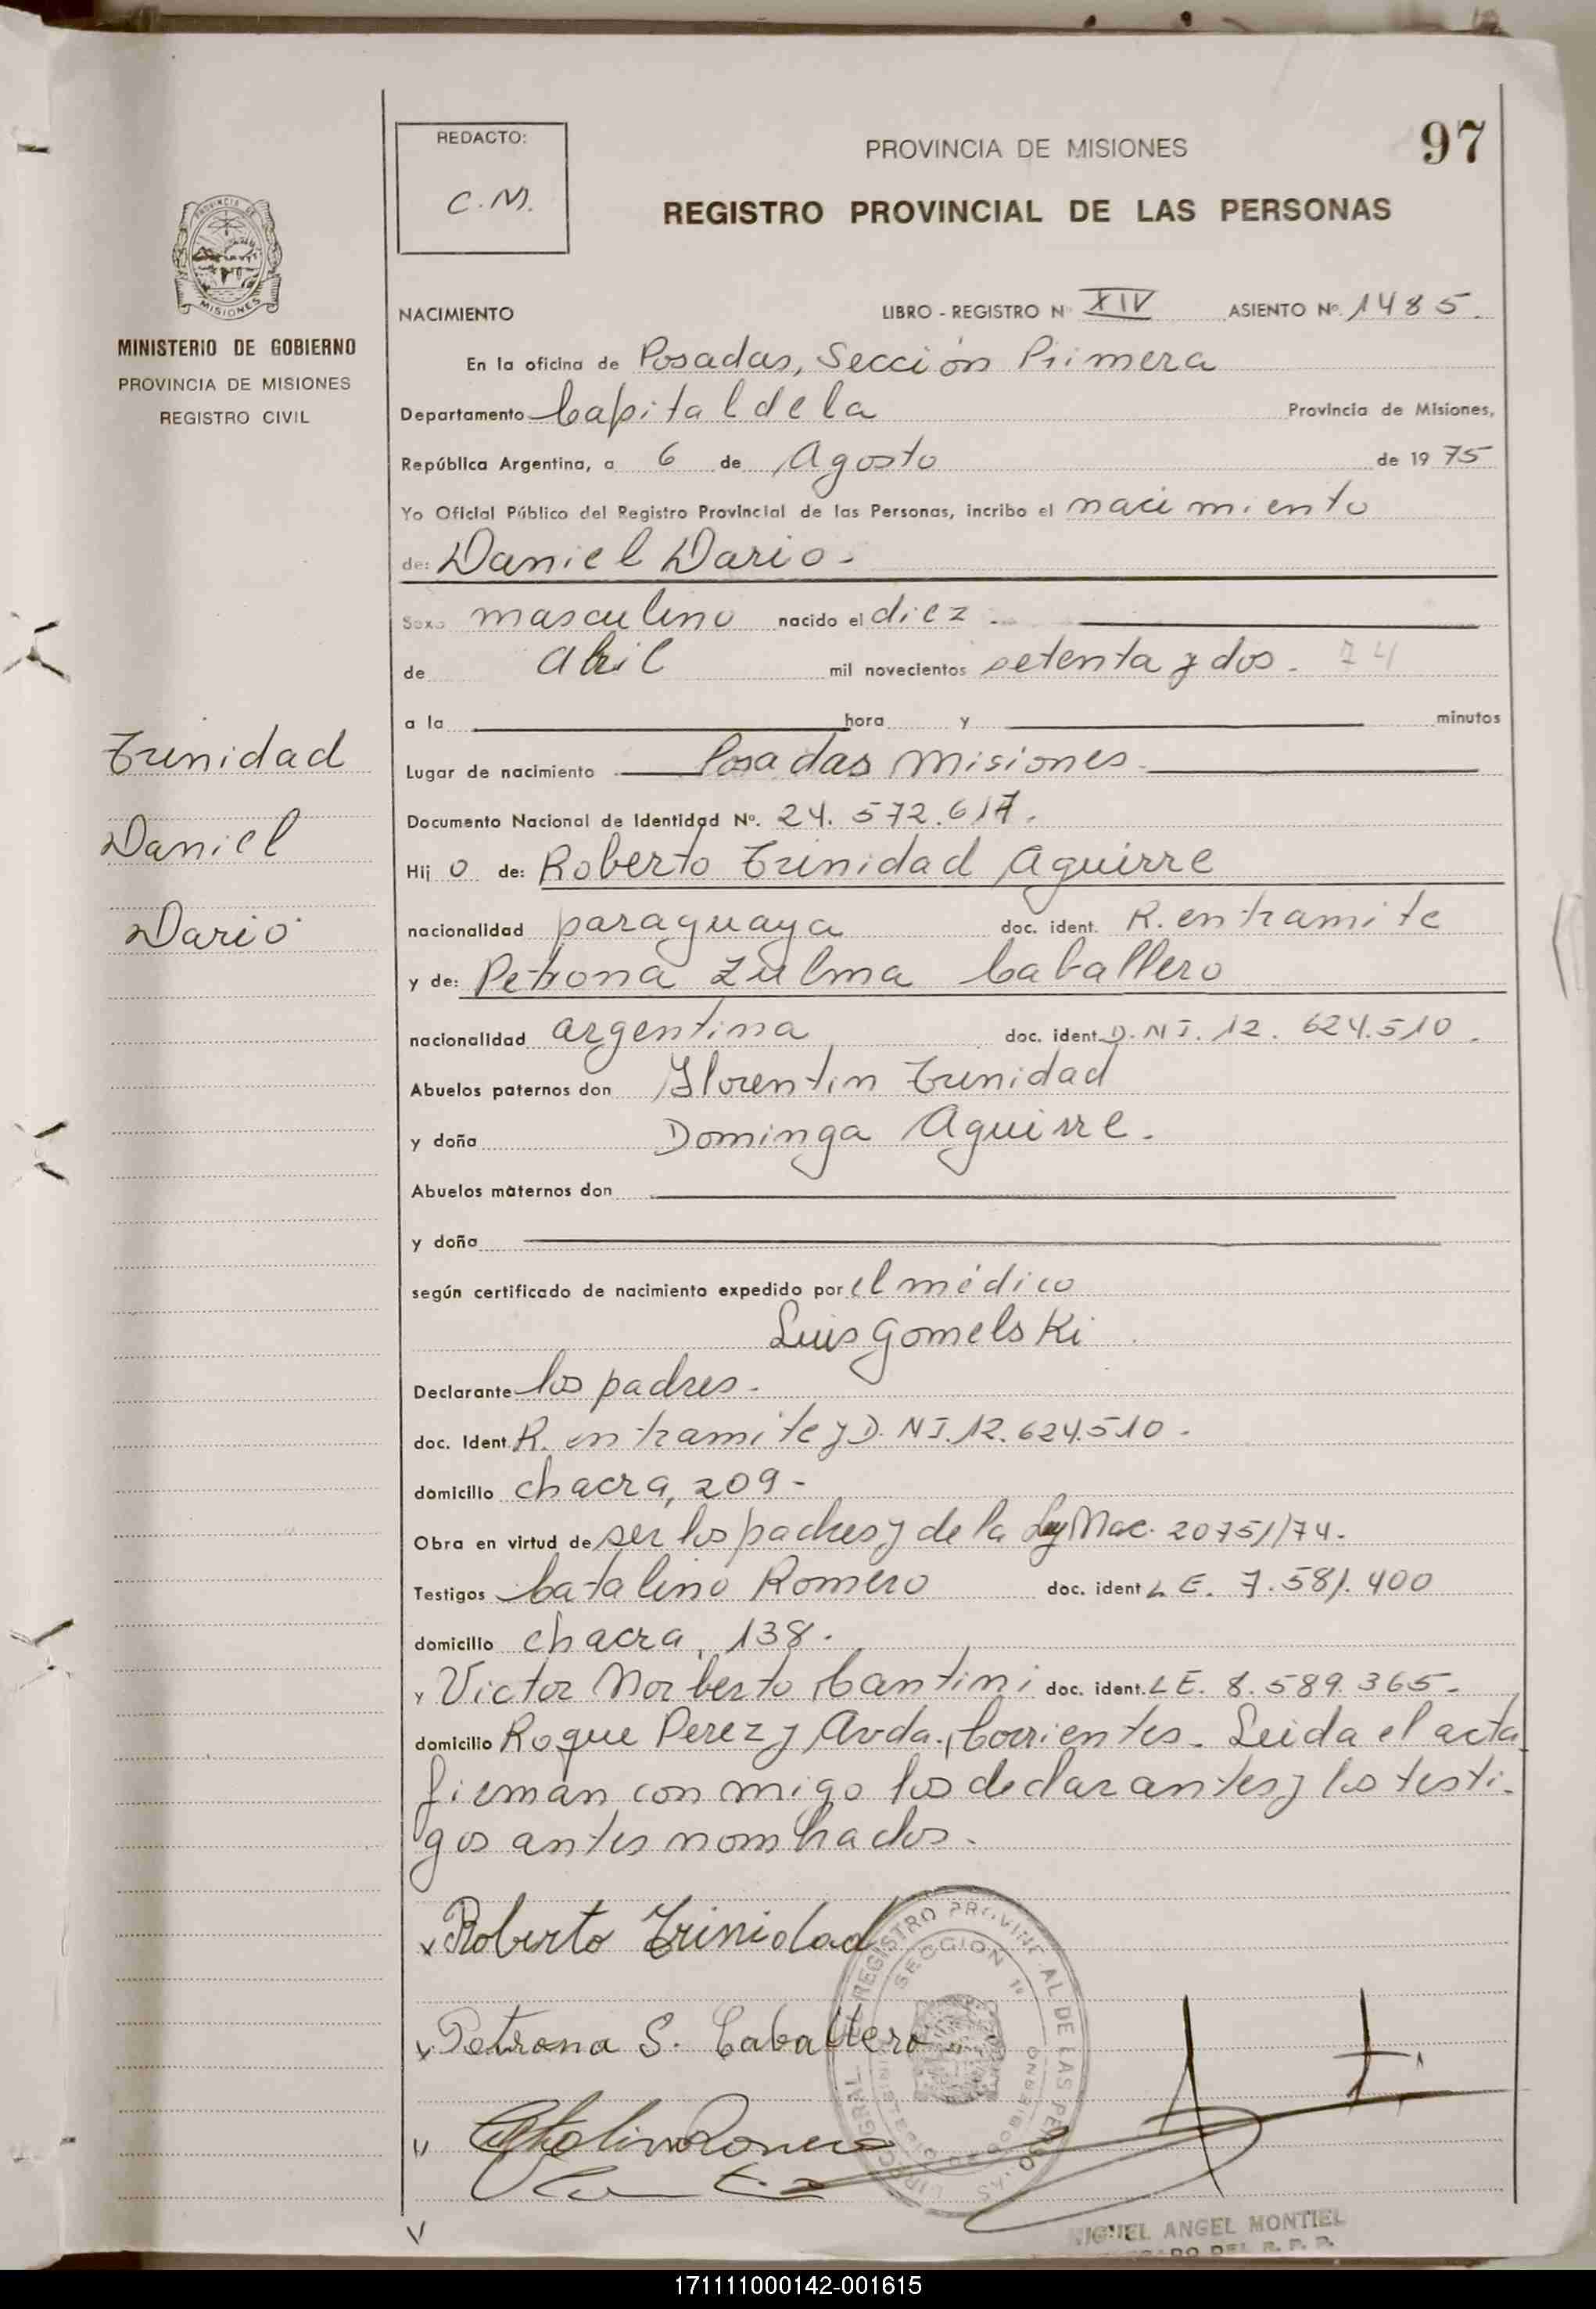 97
REDACTO:
C. M.
PROVINCIA DE MISIONES
REGISTRO PROVINCIAL DE LAS PERSONAS
PROVINCIA DE
MISIONES
MINISTERIO DE GOBIERNO
PROVINCIA DE MISIONES
REGISTRO CIVIL
NACIMIENTO LIBRO - REGISTRO N° XIV ASIENTO N° 1485.
En la oficina de Posadas, Sección Primera
Departamento Capital de la Provincia de Misiones,
República Argentina, a 6 de Agosto de 1975
Yo Oficial Público del Registro Provincial de las Personas, incribo el nacimiento
de: Daniel Dario.
Sexo masculino nacido el diez
de Abril mil novecientos setenta y dos. 74
a la hora y minutos
Trinidad
Daniel
Dario
Lugar de nacimiento Posadas Misiones.
Documento Nacional de Identidad N°. 24.572.617.
Hij o de: Roberto Trinidad Aguirre
nacionalidad paraguaya doc. ident. R. en tramite
y de: Petrona Zulma Caballero
nacionalidad argentina doc. ident. D.N I. 12.624.510.
Abuelos paternos don Florentin Trinidad
y doña Dominga Aguirre.
Abuelos maternos don
y doña
según certificado de nacimiento expedido por el médico
Luis Gomelski.
Declarante los padres.
doc. Ident. R. en tramite y D. N I. 12.624.510.
domicilio chacra, 209-
Obra en virtud de ser los padres y de la Ley Nac. 20751/74.
Testigos Catalino Romero doc. ident L E. 7.581.400
domicilio chacra, 138.
y Victor Norberto Cantini doc. ident. L E. 8.589.365.
domicilio Roque Perez y Avda. Corrientes. Leida el acta
firman con migo los declarantes y los testi-
gos antes nombrados.
Roberto Trinidad
Petrona S. Caballero
Catalino Romero
REGISTRO PROVINCIAL DE LAS PERSONAS
SECCION 1ª
MIGUEL ANGEL MONTIEL
171111000142-001615